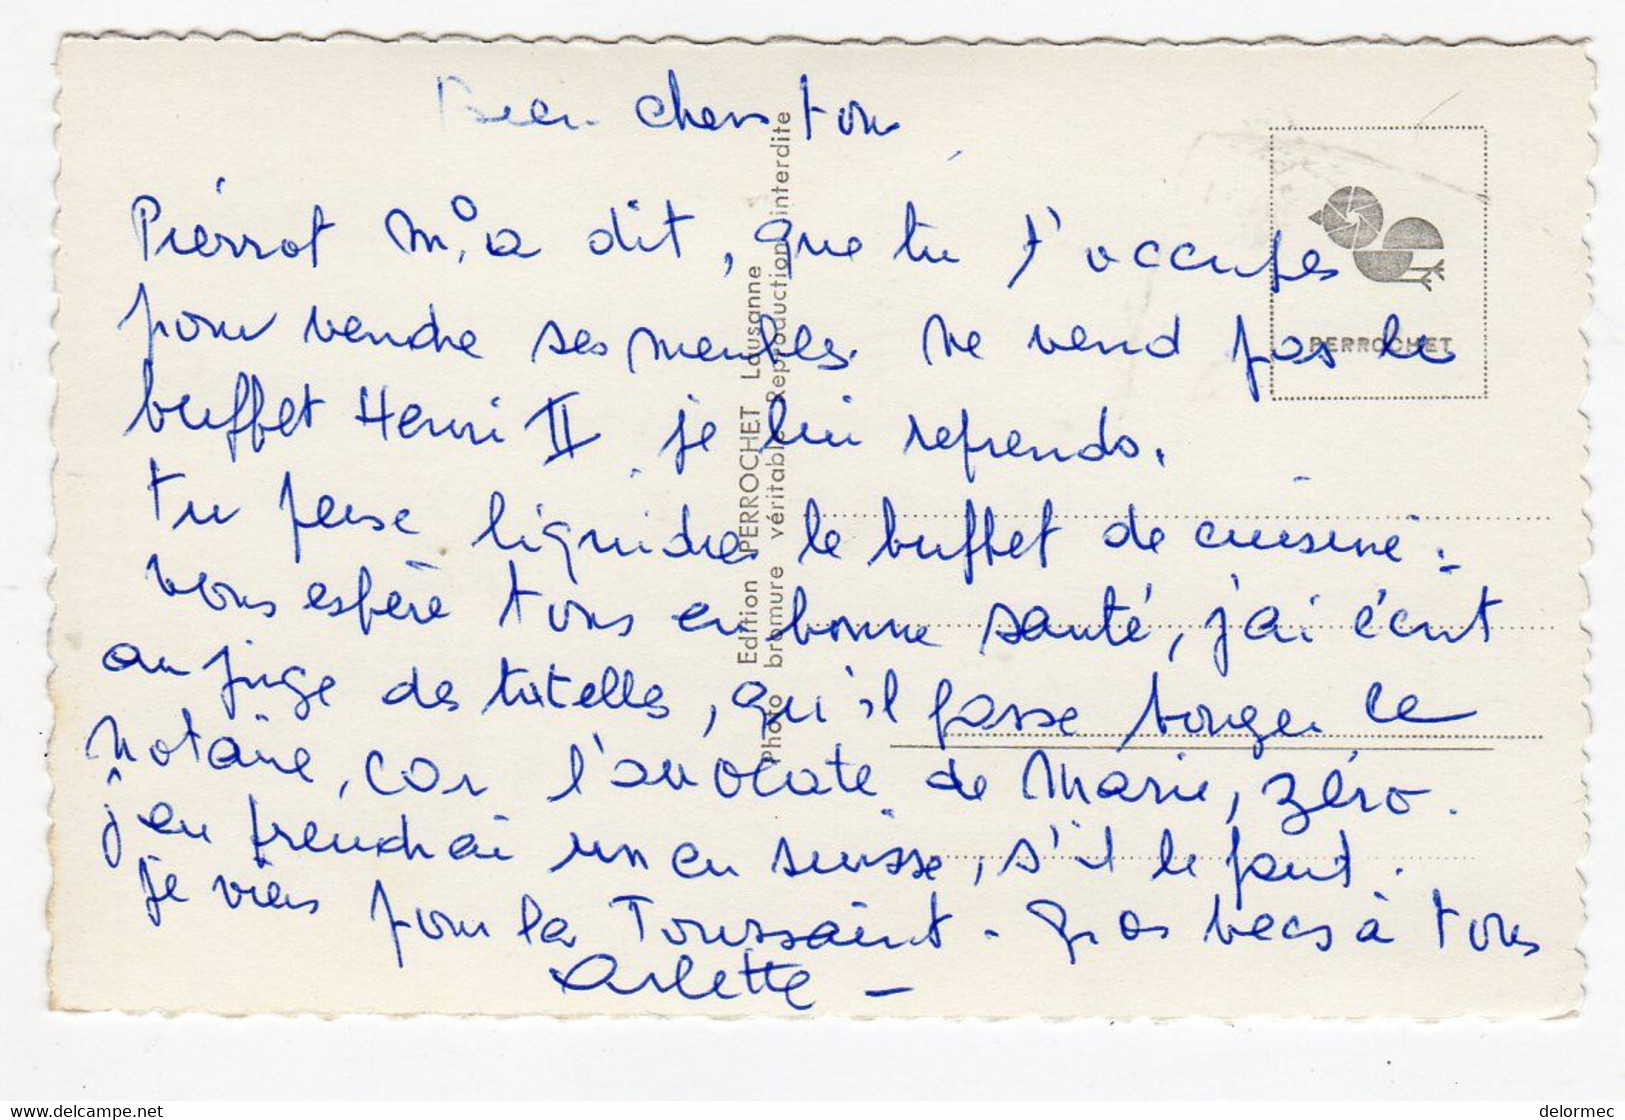 Bien chers tous
Pierrot m'a dit, que tu t'occupes
pour vendre ses meubles. Ne vend pas le
buffet Henri II je lui reprends.
tu pense liquider le buffet de cuisine.
vous espère tous en bonne santé, j'ai écrit
au juge des tutelles, qu'il fasse bouger le
notaire, car l'avocate de Marie, zéro.
j'en prendrai un en suisse, s'il le faut.
je viens pour la Toussaint - Gros becs à tous
Arlette -
Edition PERROCHET Lausanne
Photo bromure véritable Reproduction interdite
PERROCHET
delcampe.net
delormec